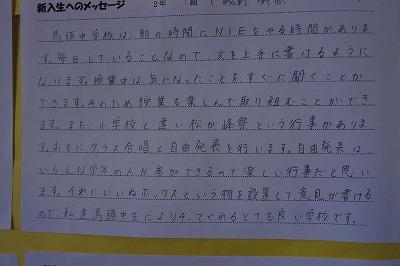 新入生へのメッセージ 2年 1組
馬頭中学校は、朝の時間にNIEをやる時間がありま
す。毎日していることなので、文を上手に書けるように
なります。授業中は、気になったことをすぐに聞くことが
できます。そのため授業も楽しんで取り組むことができ
ます。また、小学校と違い松が峰祭という行事がありま
す。おもにクラス合唱と自由発表を行います。自由発表は
いろんな学年の人が参加できるので楽しい行事だと思い
ます。それにいいねボックスという物を設置して意見が書ける
ので、私達馬頭中生によりそってくれるとても良い学校です。